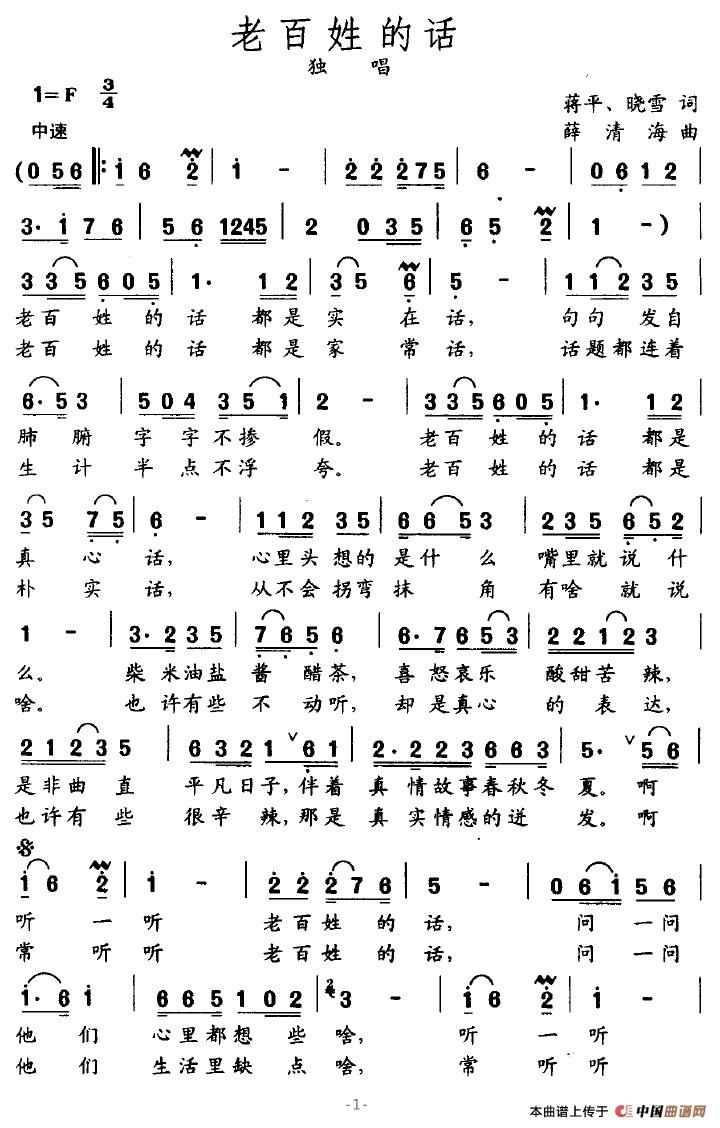 老百姓的话
独 唱
1=F 3/4
蒋平、晓雪 词
中速
薛清海 曲
(0 5 6 ‖: 1 6 2 | 1 - | 2 2 2 2 7 5 | 6 - | 0 6 1 2
3· 1 7 6 | 5 6 1245 | 2 0 3 5 | 6 5 2 | 1 -)
3 3 5 6 0 5 | 1· 1 2 | 3 5 6 | 5 - | 1 1 2 3 5
老百姓的话 都是实在话, 句句发自
老百姓的话 都是家常话, 话题都连着
6· 5 3 | 5 0 4 3 5 1 | 2 - | 3 3 5 6 0 5 | 1· 1 2
肺腑字字不掺假。 老百姓的话 都是
生计半点不浮夸。 老百姓的话 都是
3 5 7 5 | 6 - | 1 1 2 3 5 | 6 6 5 3 | 2 3 5 6 5 2
真心话, 心里头想的是什么 嘴里就说什
朴实话, 从不会拐弯抹角 有啥就说
1 - | 3· 2 3 5 | 7 6 5 6 | 6· 7 6 5 3 | 2 2 1 2 3
么。 柴米油盐酱醋茶, 喜怒哀乐 酸甜苦辣,
啥。 也许有些不动听, 却是真心的表达,
2 1 2 3 5 | 6 3 2 1 6 1 | 2· 2 2 3 6 6 3 | 5· 5 6
是非曲直 平凡日子,伴着真情故事春秋冬夏。啊
也许有些 很辛辣,那是真实情感的迸发。啊
1 6 2 | 1 - | 2 2 2 7 6 | 5 - | 0 6 1 5 6
听一听 老百姓的话, 问一问
常听听 老百姓的话, 问一问
1· 6 1 | 6 6 5 1 0 2 | 3 - | 1 6 2 | 1 -
他们 心里都想些啥, 听一听
他们 生活里缺点啥, 常听听
-1-
本曲谱上传于 中国曲谱网